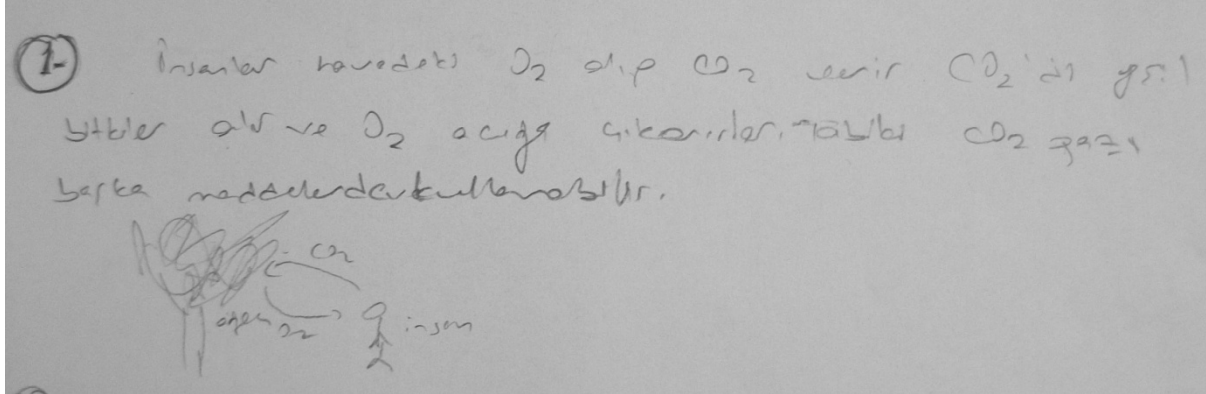 1- İnsanlar havadaki O2 alıp CO2 verir CO2'di yeşil
bitkiler alır ve O2 açığa çıkarırlar. Tabiki CO2 gazı
başka maddelerde kullanabilir.
CO2
O2
insan